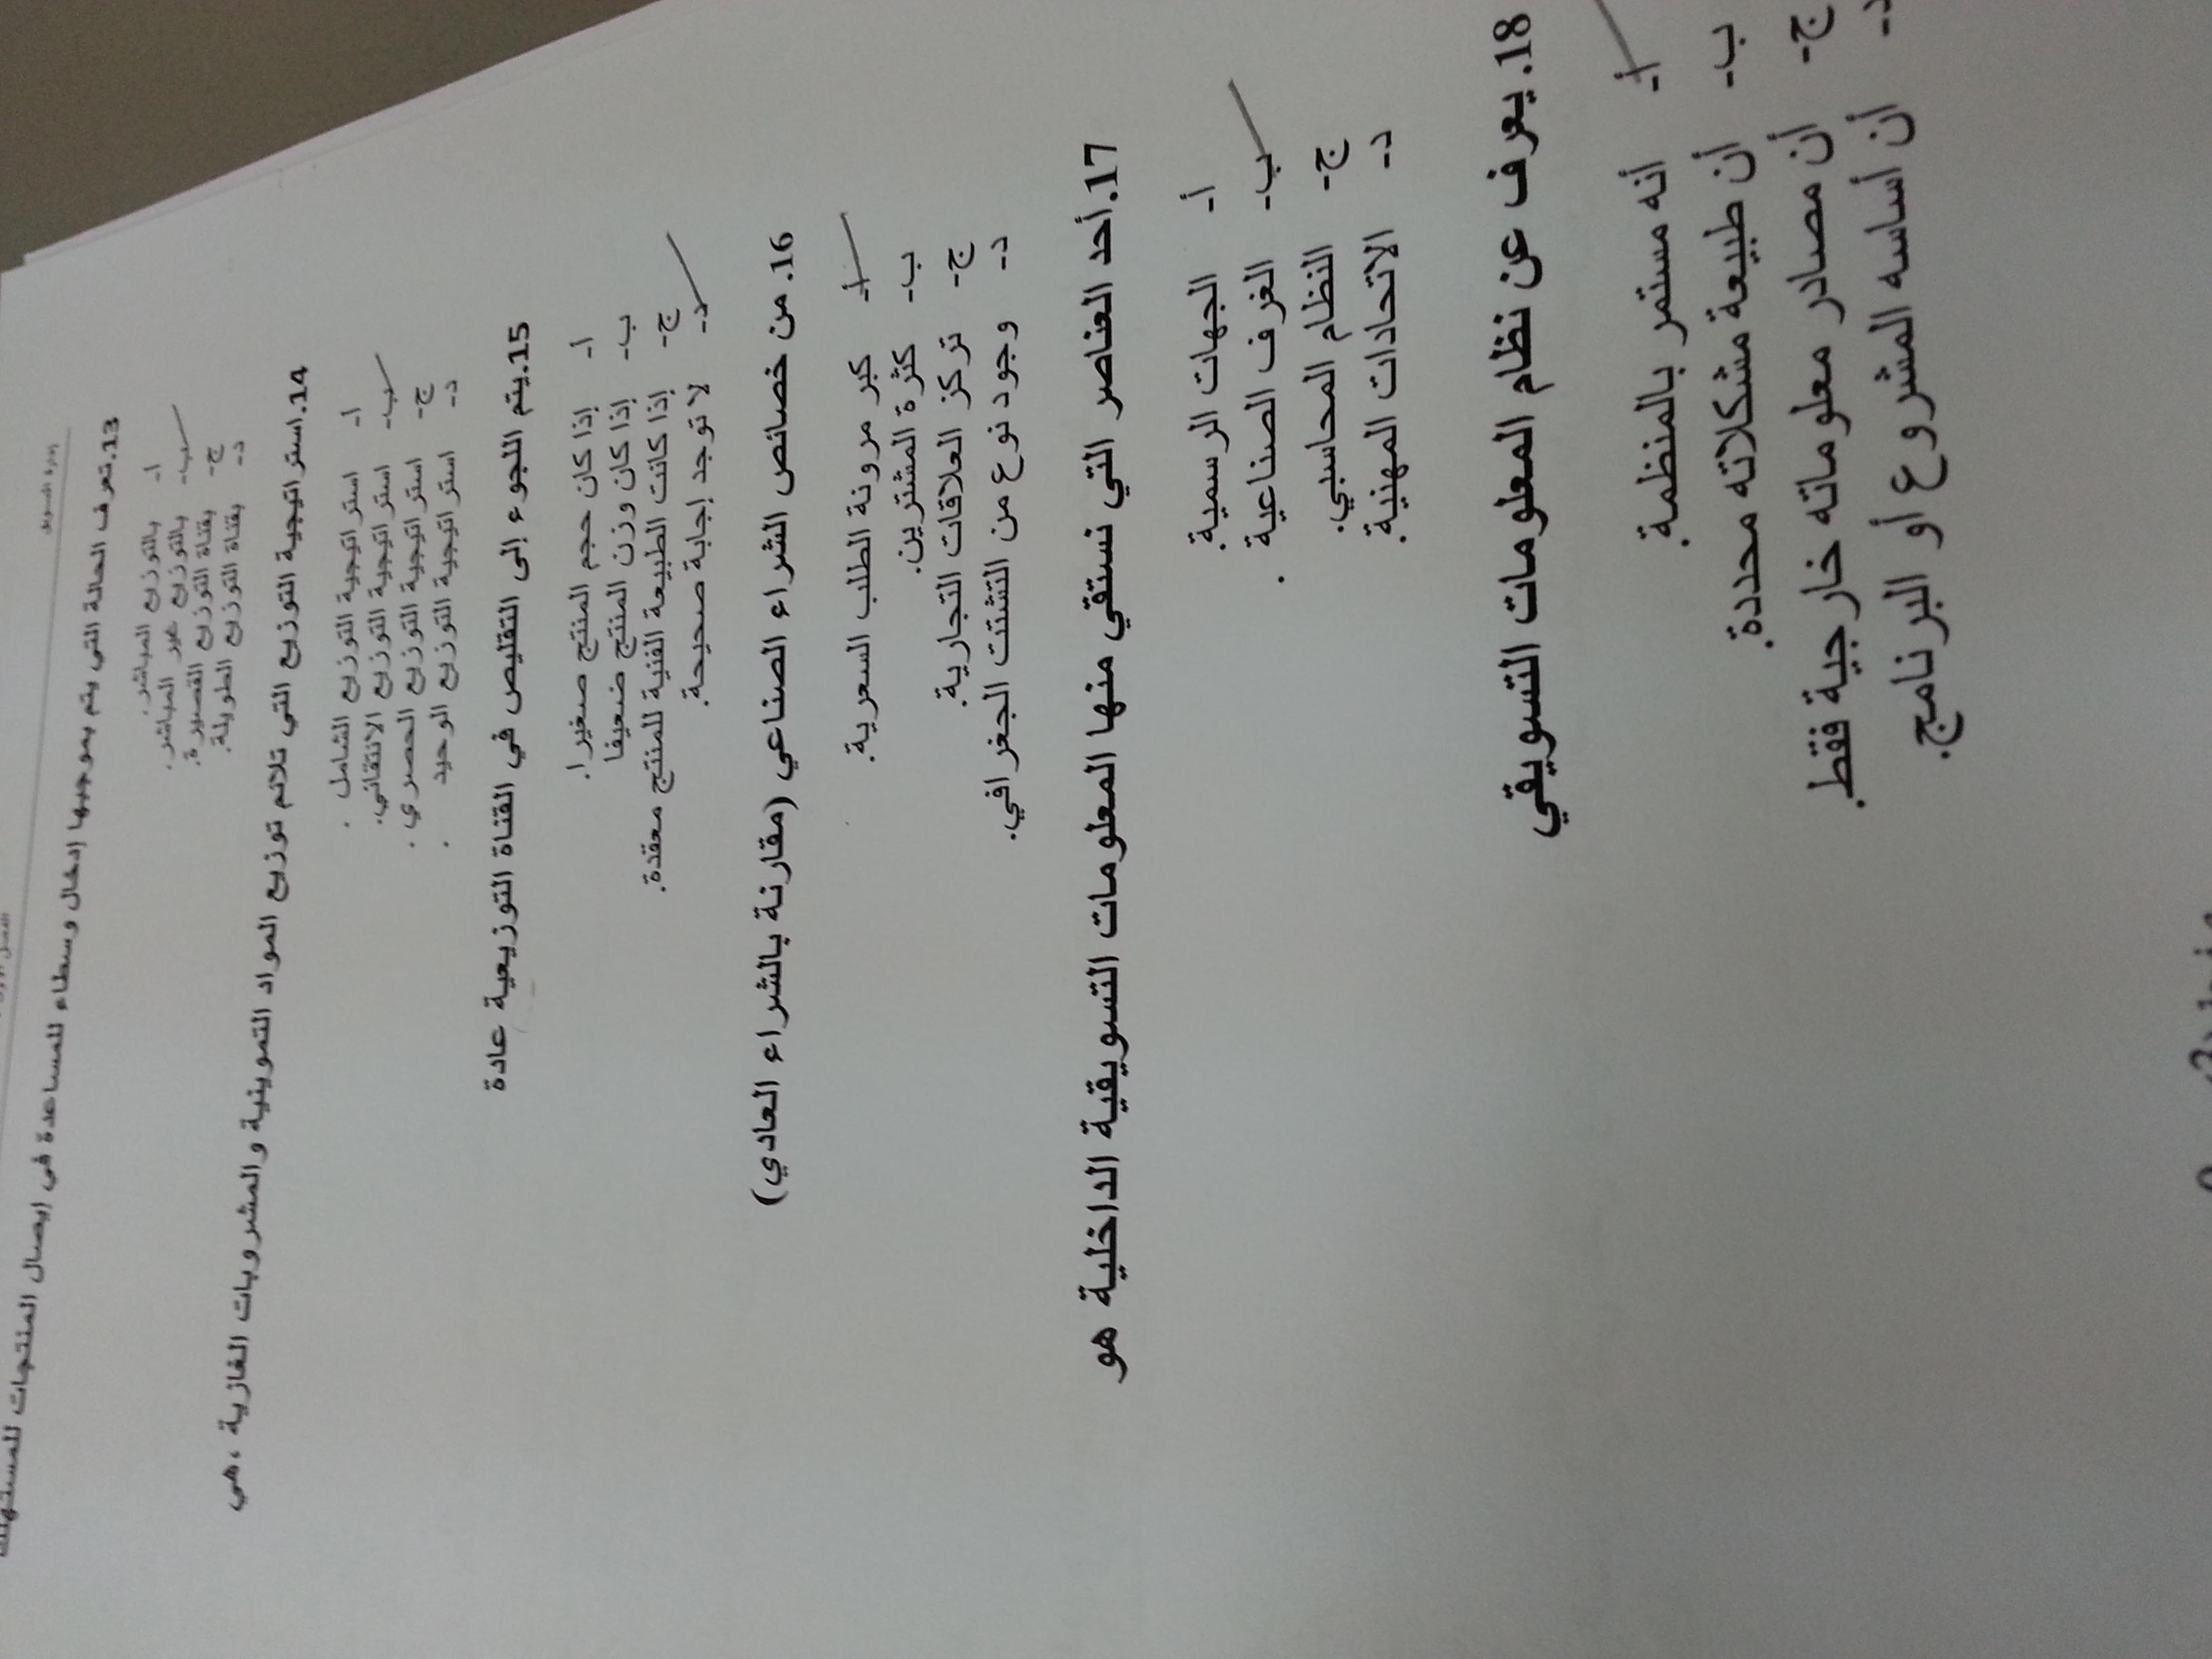 إدارة التسويق
13.تعرف الحالة التي يتم بموجبها إدخال وسطاء للمساعدة في إيصال المنتجات للمستهلك
أ- بالتوزيع المباشر.
ب- بالتوزيع غير المباشر.
ج- بقناة التوزيع القصيرة.
د- بقناة التوزيع الطويلة.
14.استراتيجية التوزيع التي تلائم توزيع المواد التموينية والمشروبات الغازية ،هي
أ- استراتيجية التوزيع الشامل .
ب- استراتيجية التوزيع الانتقائي.
ج- استراتيجية التوزيع الحصري .
د- استراتيجية التوزيع الوحيد .
15.يتم اللجوء إلى التقليص في القناة التوزيعية عادة
أ- إذا كان حجم المنتج صغيرا.
ب- إذا كان وزن المنتج ضعيفا
ج- إذا كانت الطبيعة الفنية للمنتج معقدة.
د- لا توجد إجابة صحيحة.
16. من خصائص الشراء الصناعي (مقارنة بالشراء العادي)
أ- كبر مرونة الطلب السعرية.
ب- كثرة المشترين.
ج- تركز العلاقات التجارية.
د- وجود نوع من التشتت الجغرافي.
17.أحد العناصر التي نستقي منها المعلومات التسويقية الداخلية هو
أ- الجهات الرسمية.
ب- الغرف الصناعية .
ج- النظام المحاسبي.
د- الاتحادات المهنية.
18.يعرف عن نظام المعلومات التسويقي
أ- أنه مستمر بالمنظمة.
ب- أن طبيعة مشكلاته محددة.
ج- أن مصادر معلوماته خارجية فقط.
د- أن أساسه المشروع أو البرنامج.